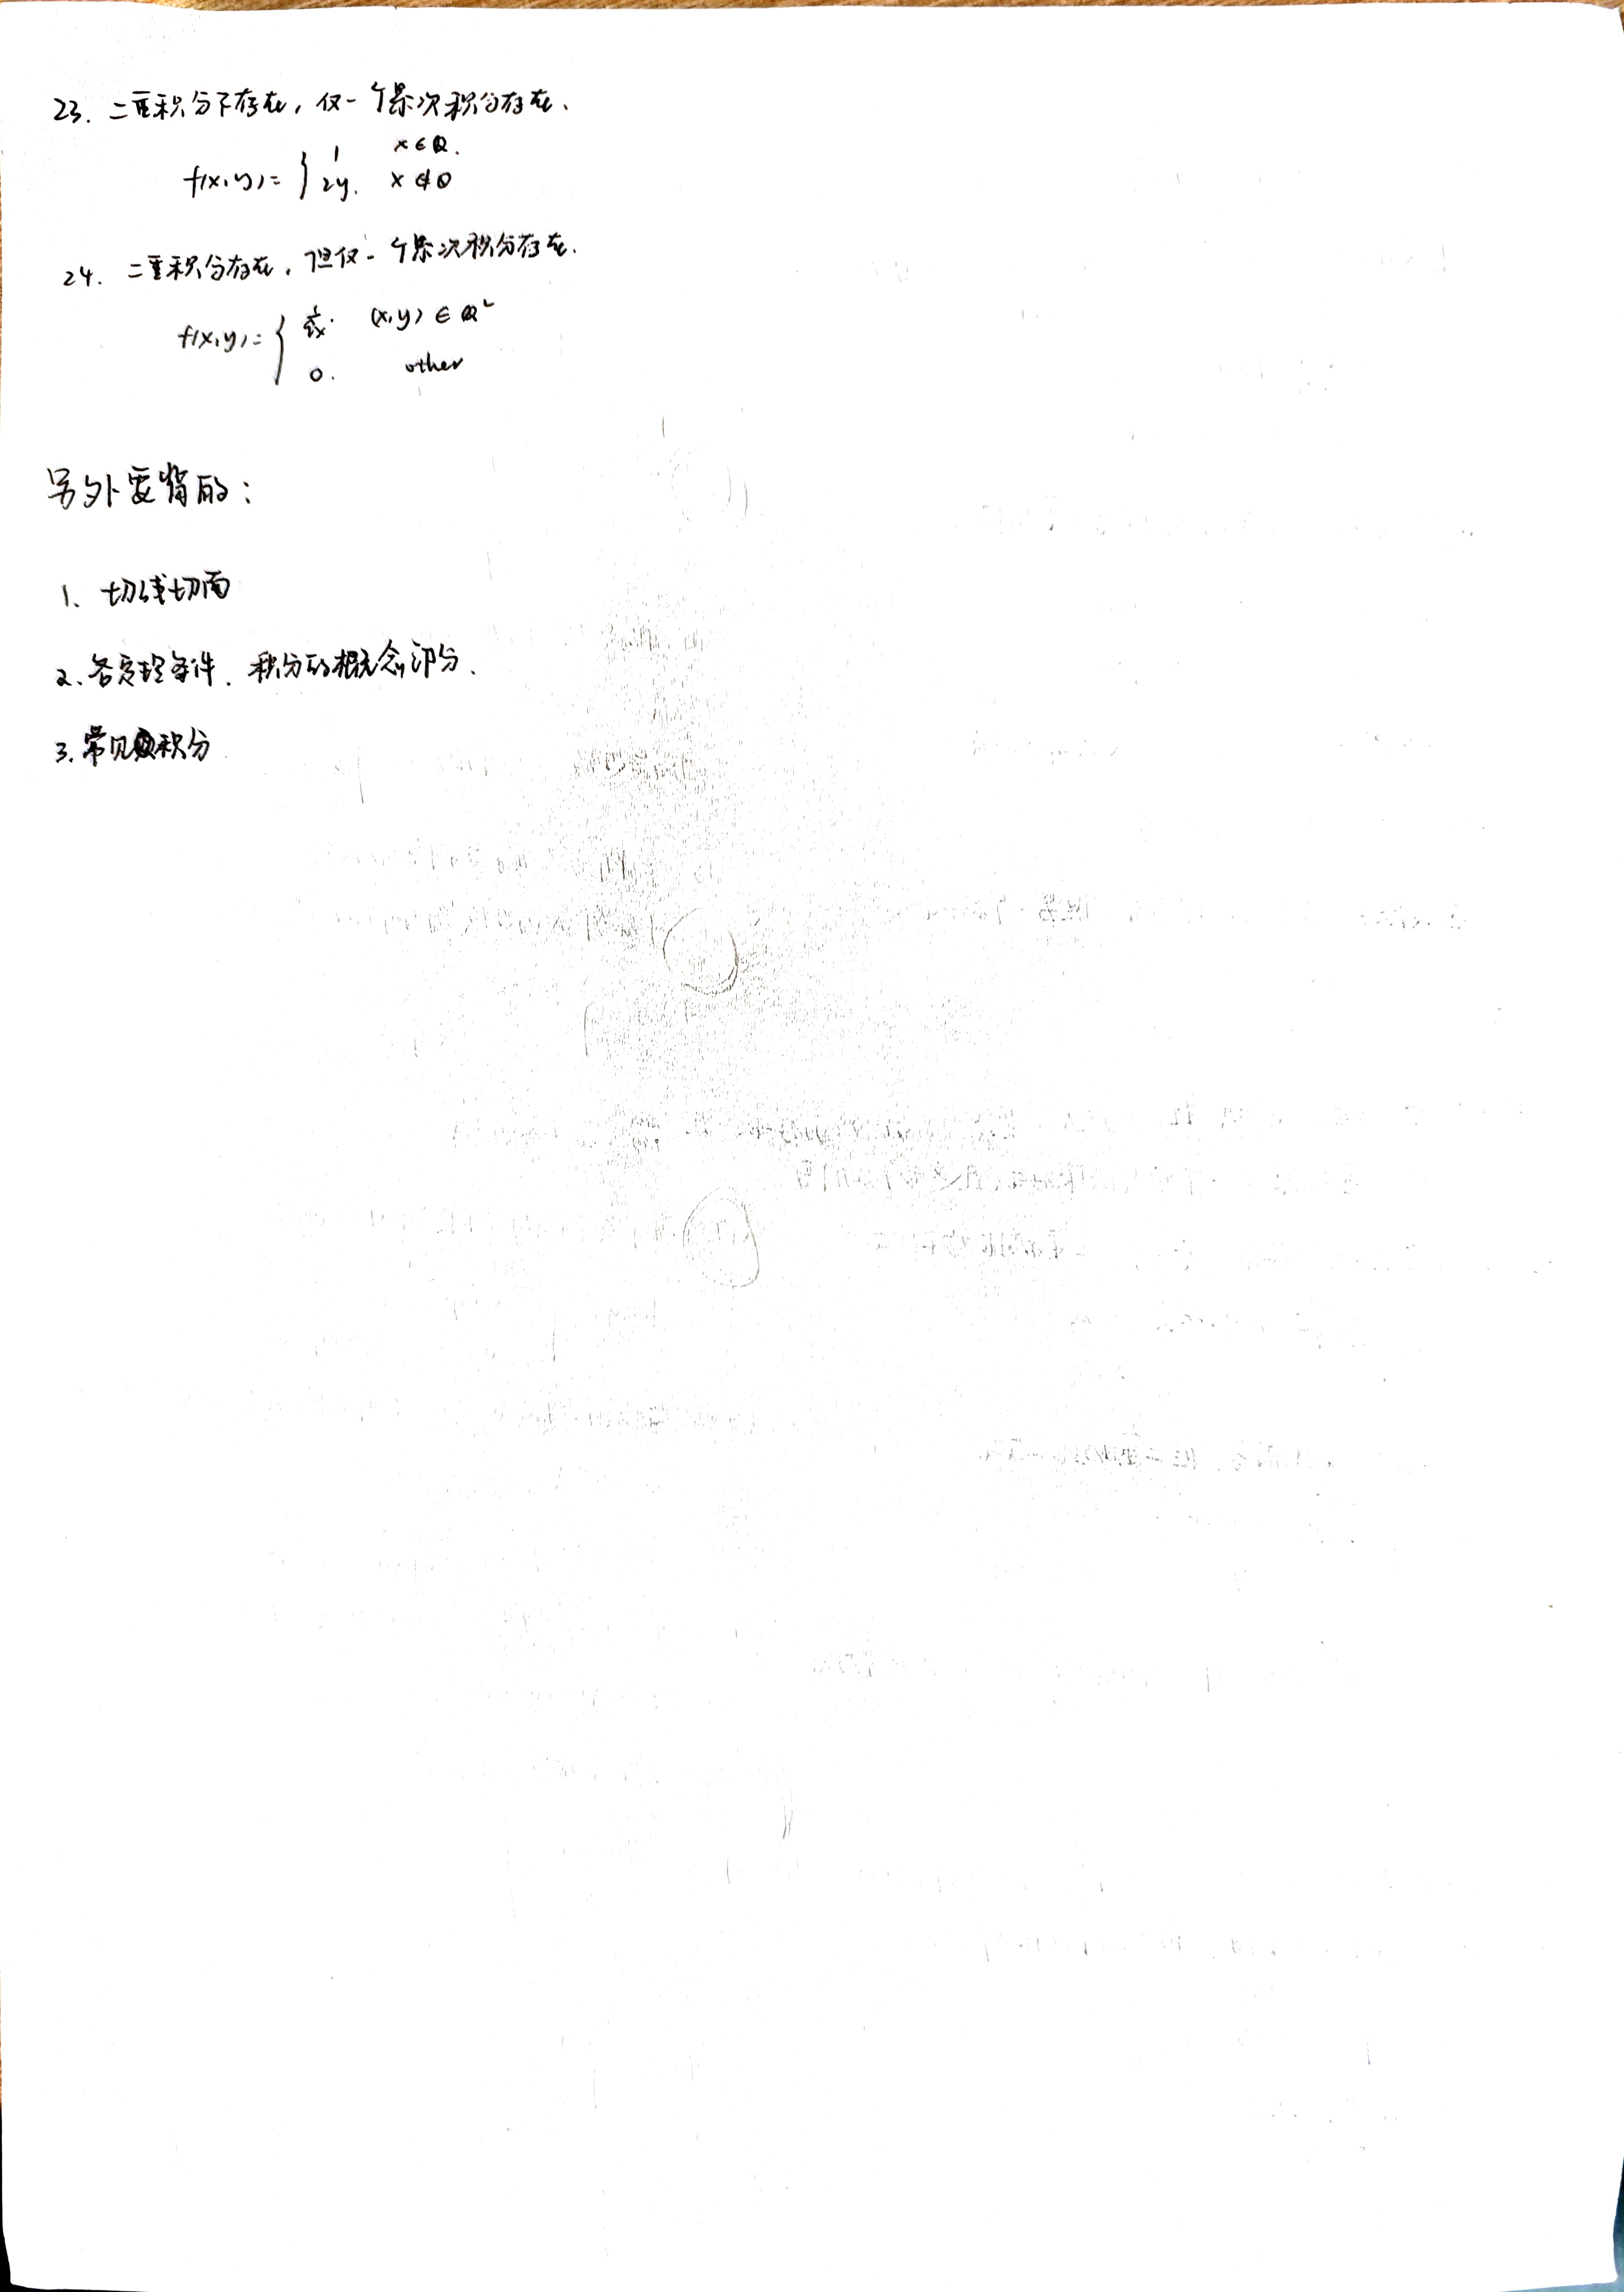 23. 二重积分不存在, 仅一个累次积分存在.
f(x,y)= { 1 x∈Q.
2y. x∉Q
24. 二重积分存在, 但仅一个累次积分存在.
f(x,y)= { (x,y)∈Q²
0. other
另外要背的:
1、切线切面
2、各定理条件. 积分的概念部分.
3. 常见积分